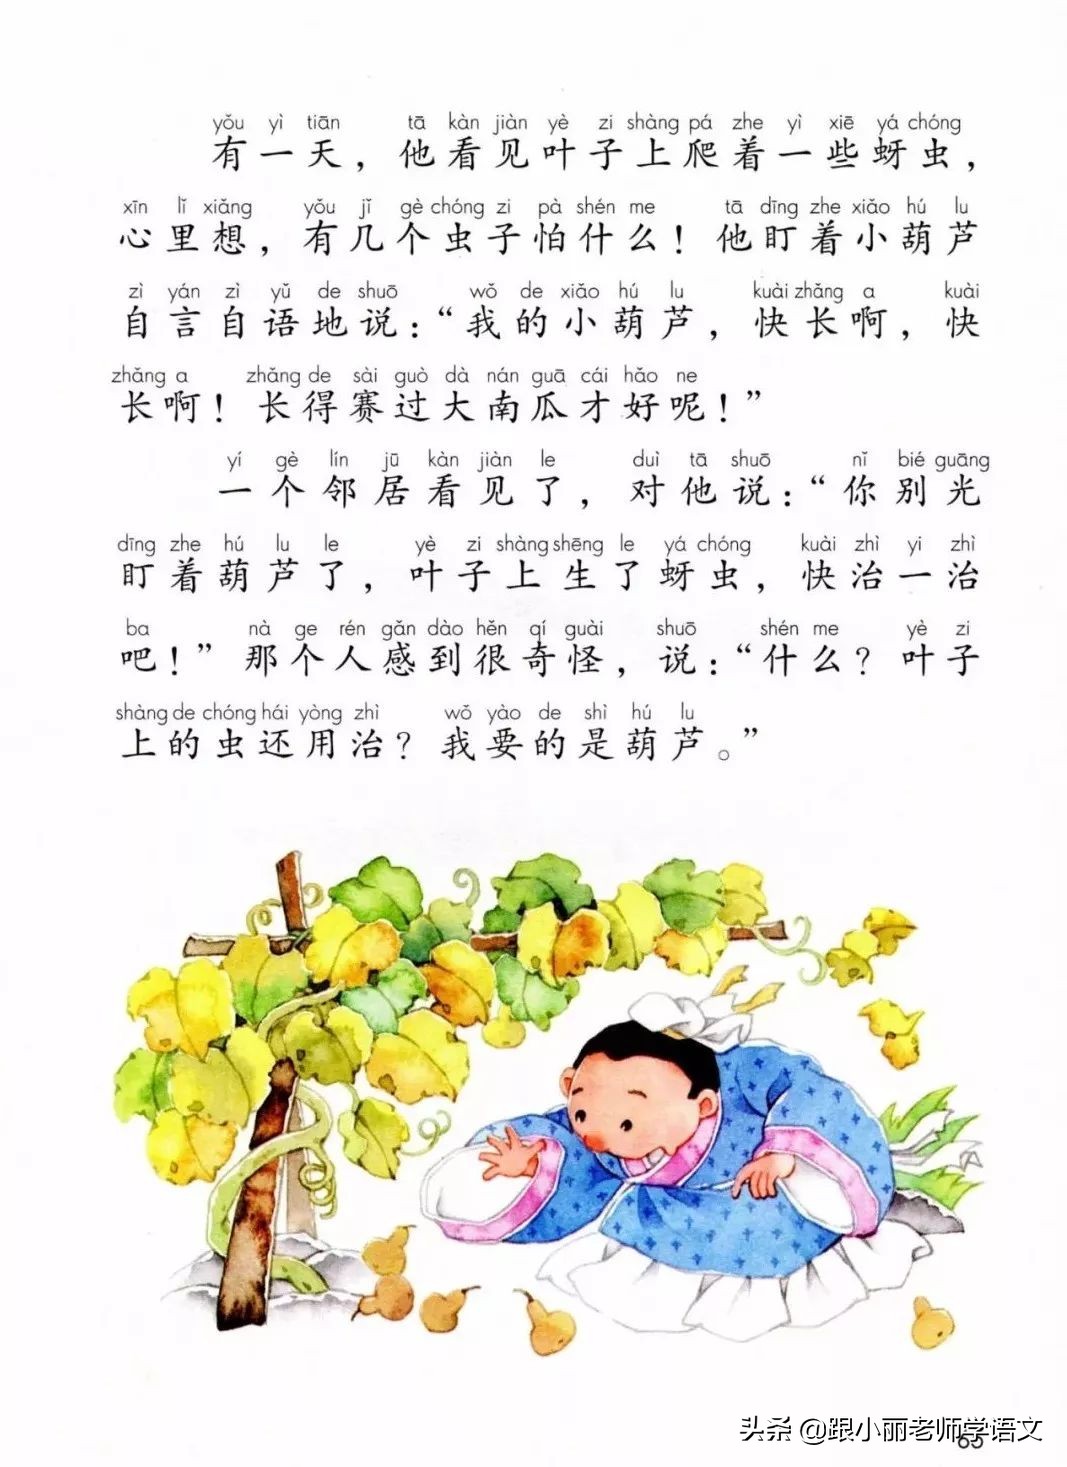 yǒu yì tiān tā kàn jiàn yè zi shàng pá zhe yì xiē yá chóng
有一天，他看见叶子上爬着一些蚜虫，
xīn lǐ xiǎng yǒu jǐ gè chóng zi pà shén me tā dīng zhe xiǎo hú lu
心里想，有几个虫子怕什么！他盯着小葫芦
zì yán zì yǔ de shuō wǒ de xiǎo hú lu kuài zhǎng a kuài
自言自语地说：“我的小葫芦，快长啊，快
zhǎng a zhǎng de sài guò dà nán guā cái hǎo ne
长啊！长得赛过大南瓜才好呢！”
yí gè lín jū kàn jiàn le duì tā shuō nǐ bié guāng
一个邻居看见了，对他说：“你别光
dīng zhe hú lu le yè zi shàng shēng le yá chóng kuài zhì yi zhì
盯着葫芦了，叶子上生了蚜虫，快治一治
ba nà ge rén gǎn dào hěn qí guài shuō shén me yè zi
吧！”那个人感到很奇怪，说：“什么？叶子
shàng de chóng hái yòng zhì wǒ yào de shì hú lu
上的虫还用治？我要的是葫芦。”
头条 @跟小丽老师学语文
65